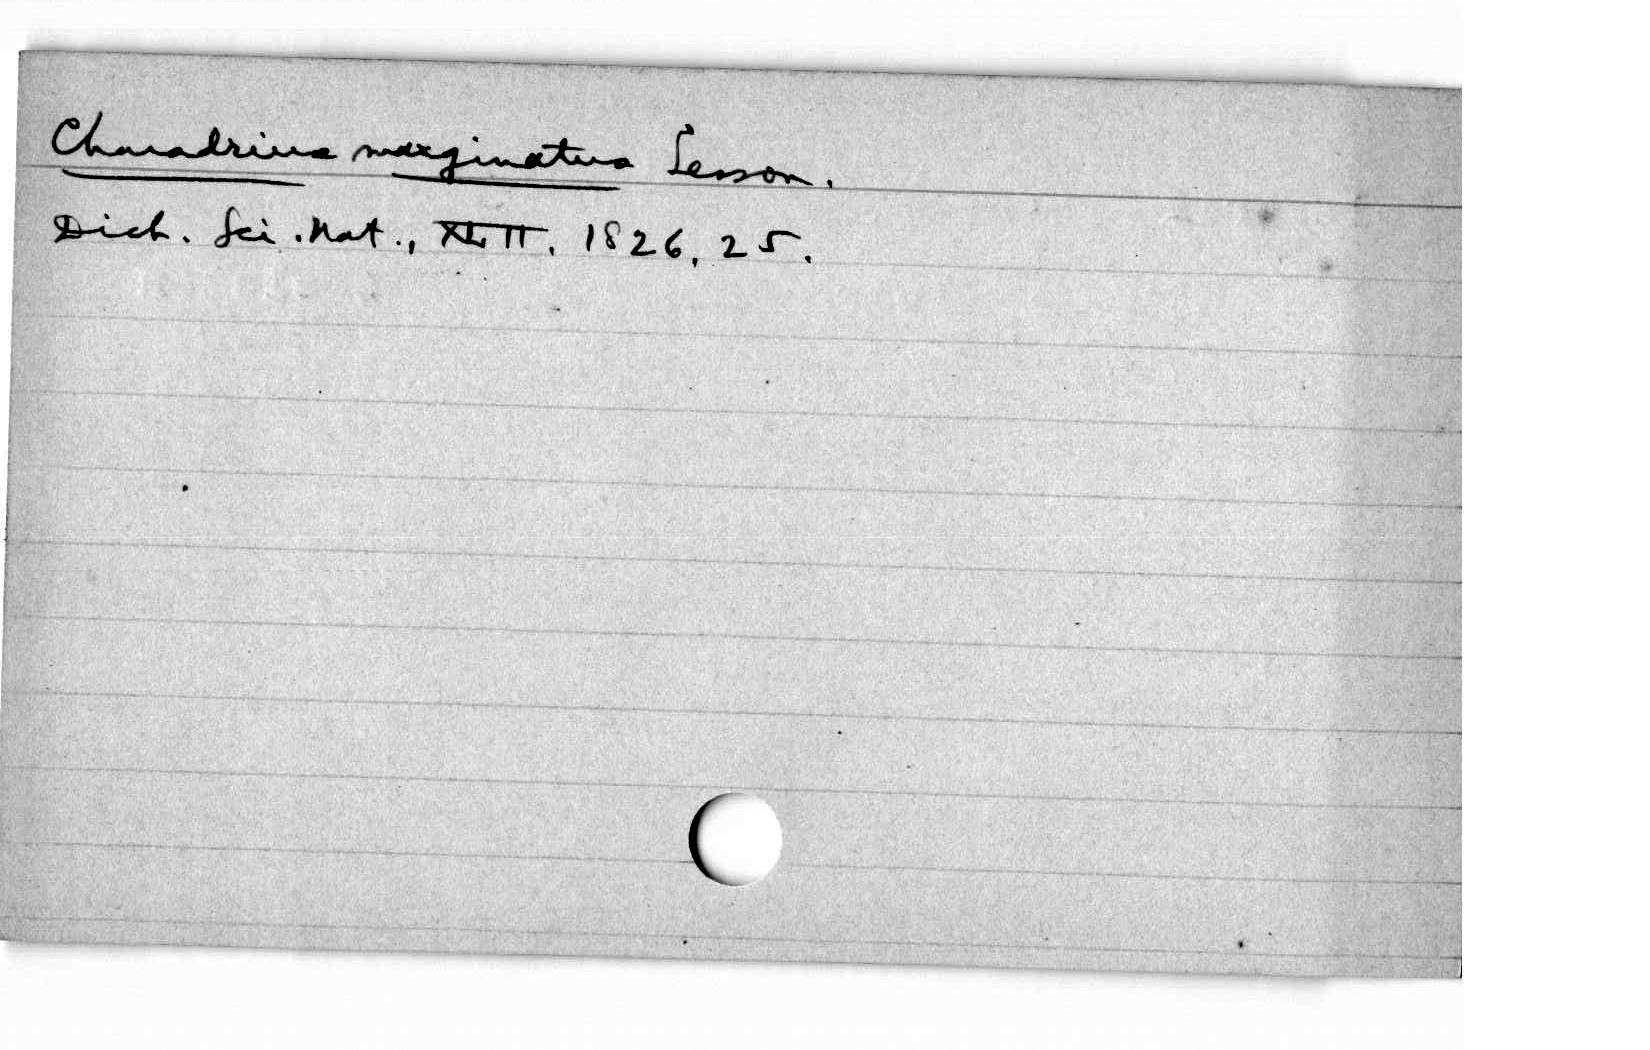 Charadrius marginatus Lesson.
Dict. Sci. Nat., XLII, 1826, 25.